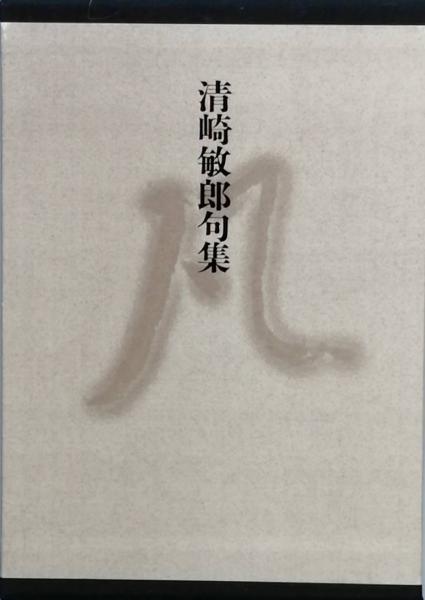 清崎敏郎句集
凡